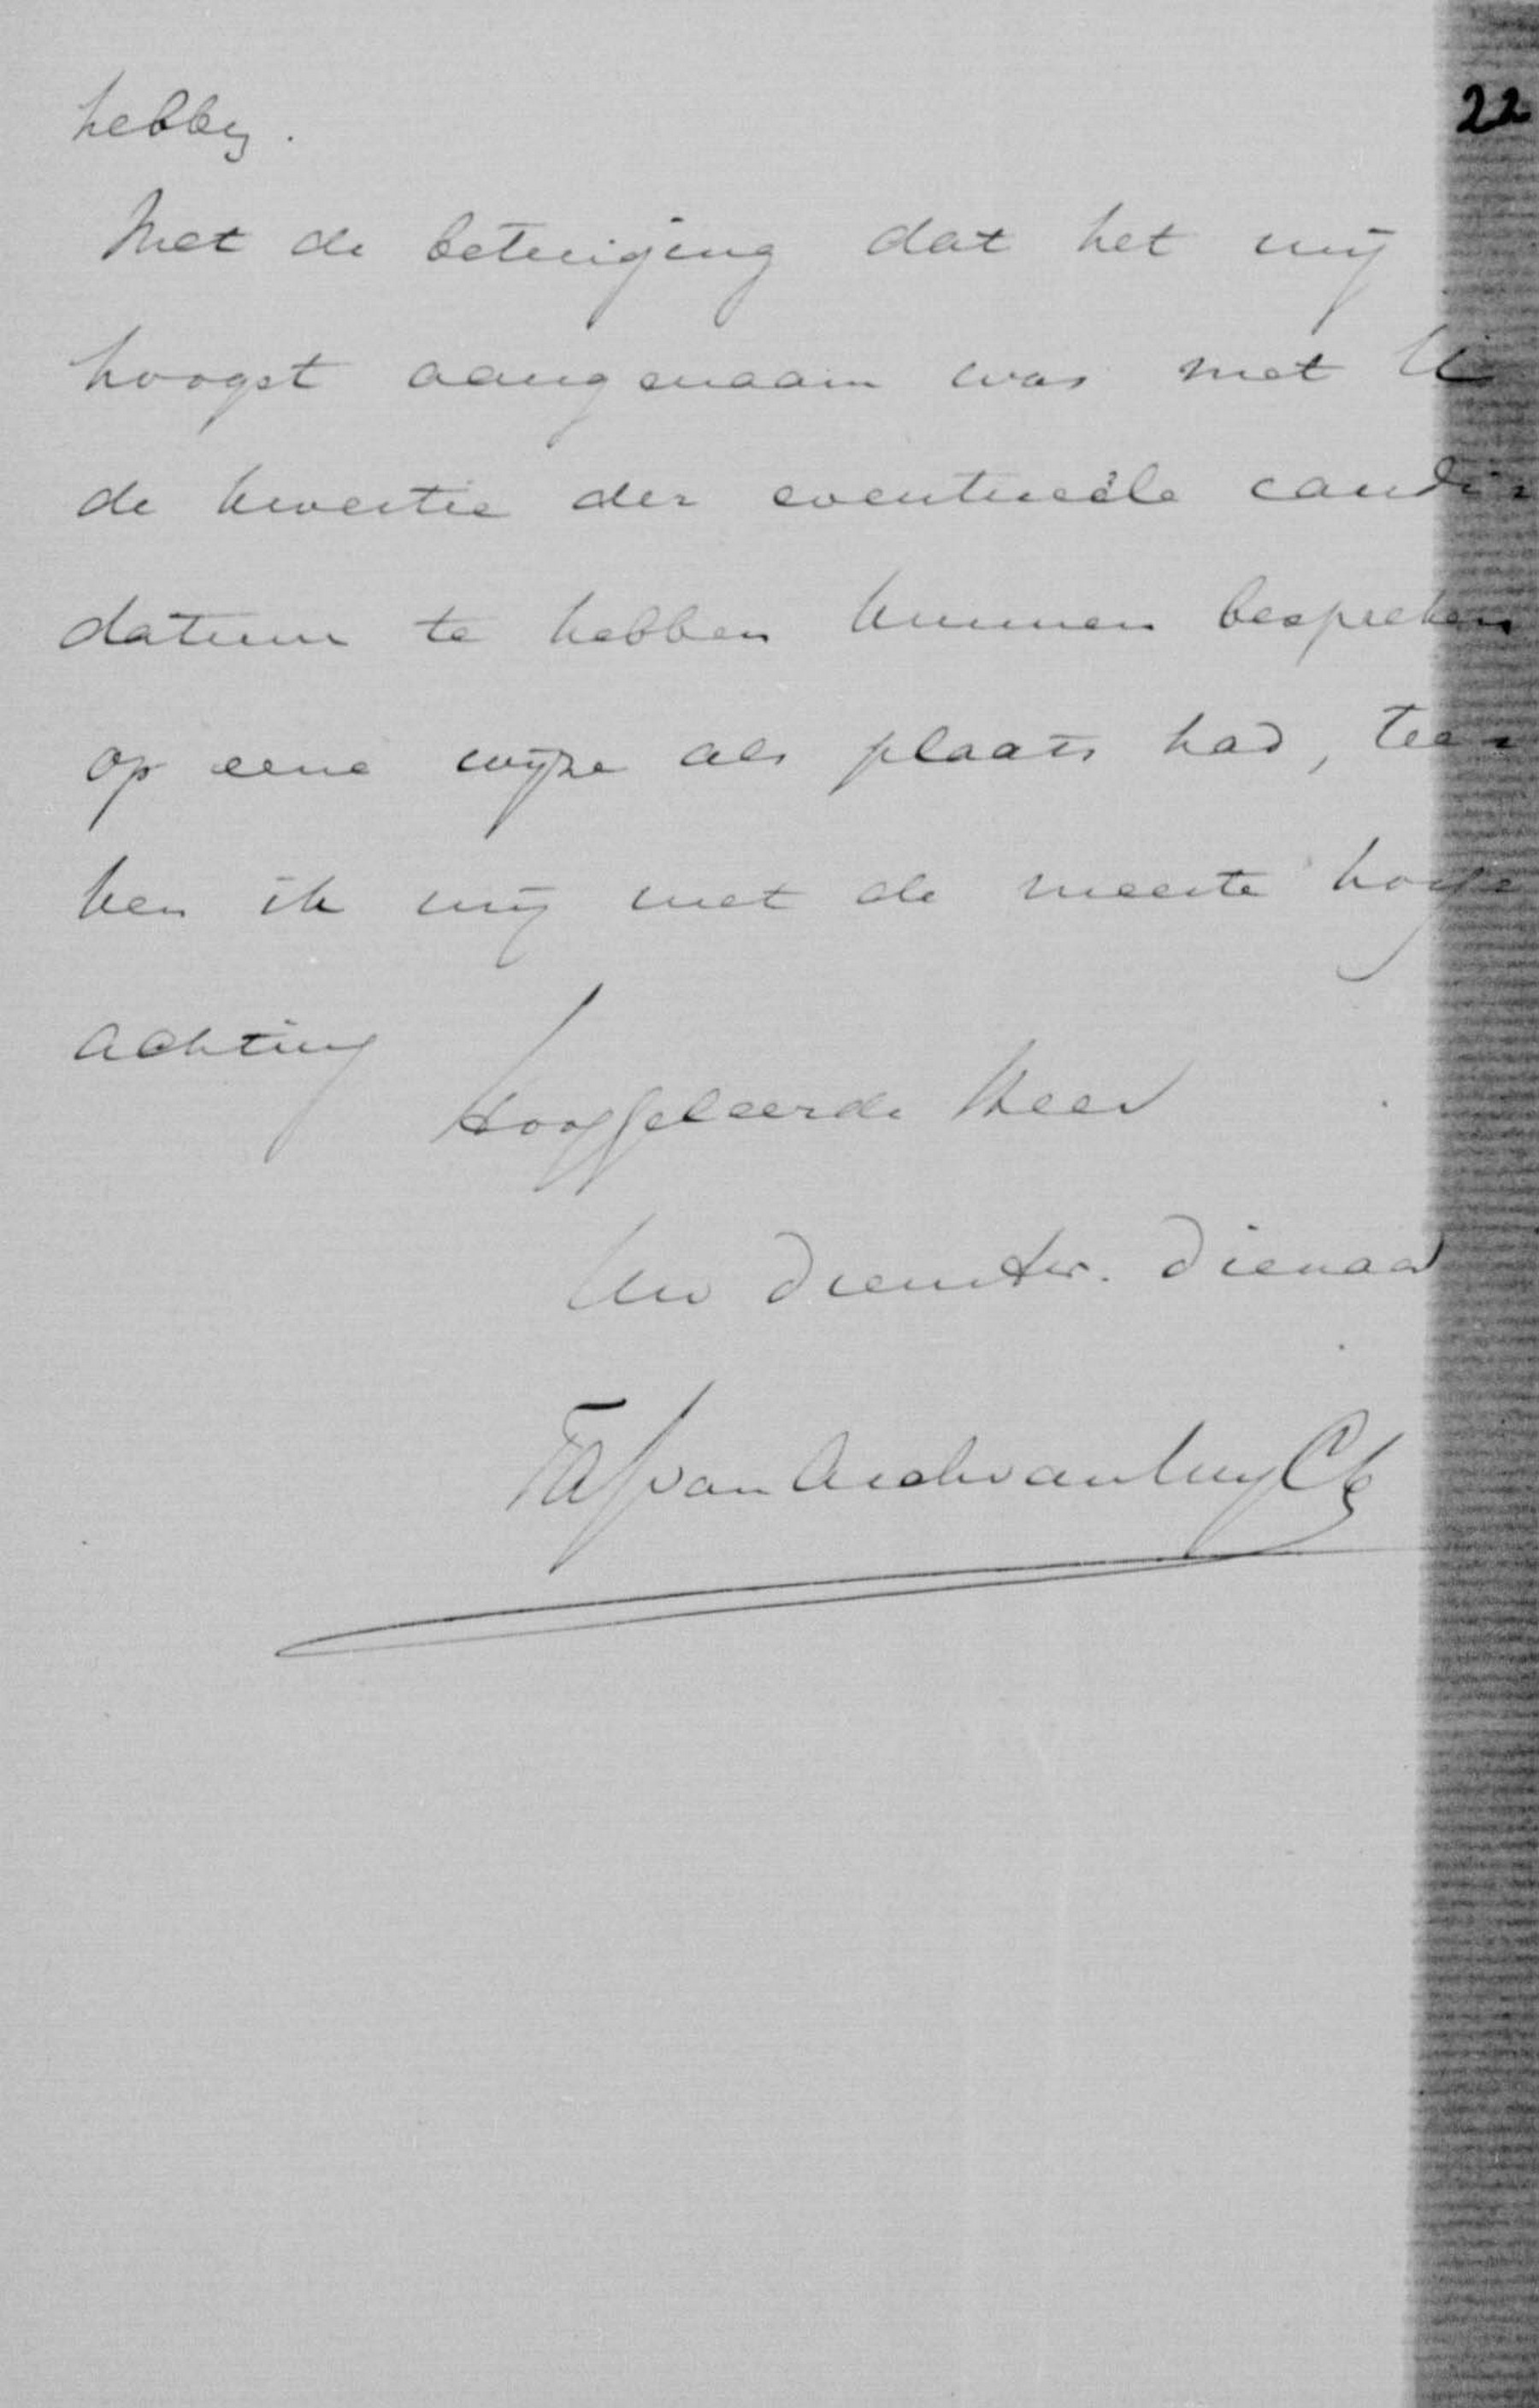 22
hebben.
Met de betuiging dat het mij
hoogst aangenaam was met U
de kwestie der eventueële candi=
datuur te hebben kunnen bespreken
op eene wijze als plaats had, tee=
ken ik mij met de meeste hoog=
achting
Hooggeleerde Heer
Uw dienstw. dienaar
van